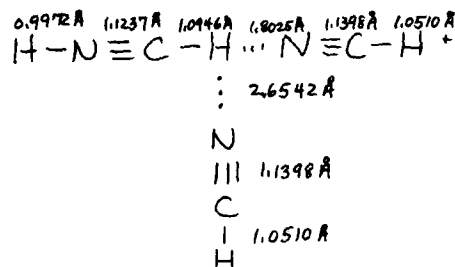 0.9972Å 1.1237Å 1.0946Å 1.8025Å 1.1398Å 1.0510Å
H—N≡C—H⋯N≡C—H⁺
⋮ 2.6542Å
N
||| 1.1398Å
C
| 1.0510Å
H